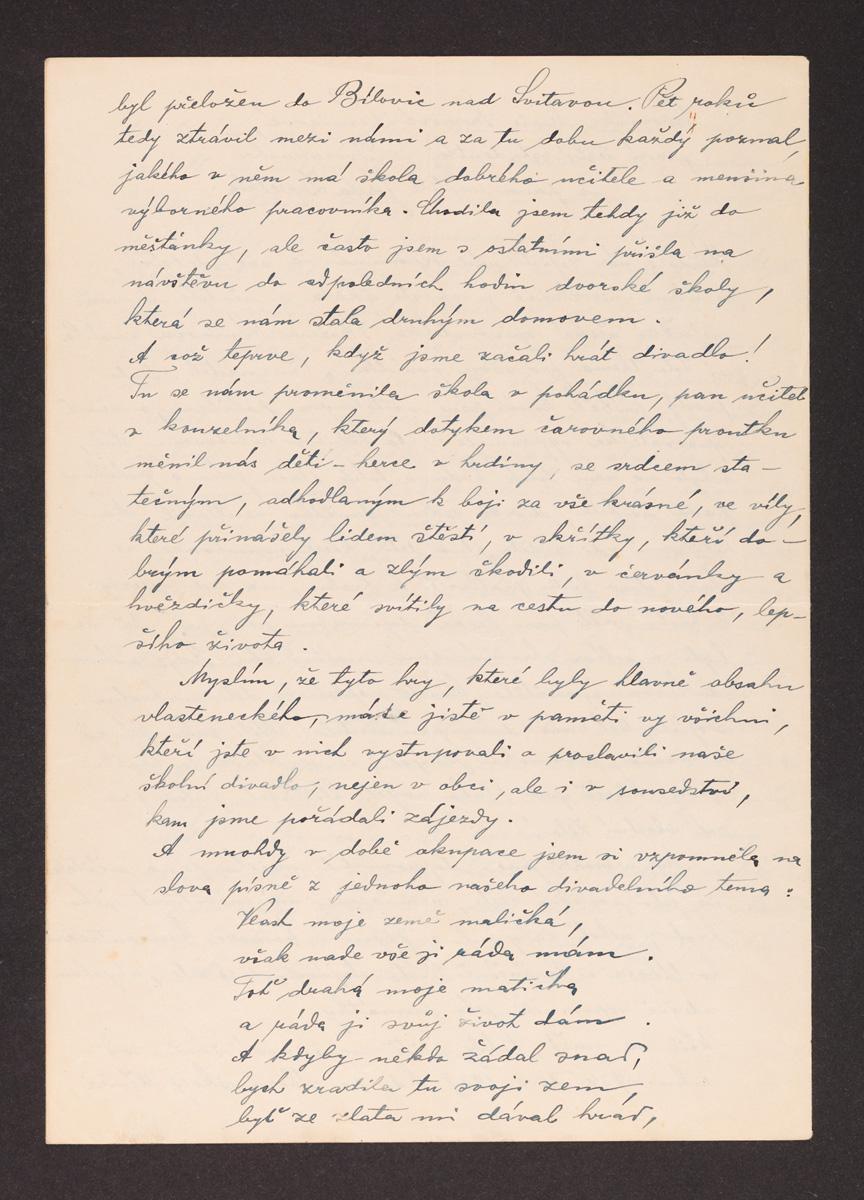 byl přeložen do Bílovic nad Svitavou. Pět roků
tedy ztrávil mezi námi a za tu dobu každý poznal,
jakého v něm má škola dobrého učitele a menšina
výborného pracovníka. Chodila jsem tehdy již do
měšťánky, ale často jsem s ostatními přišla na
návštěvu do odpoledních hodin dvorské školy,
která se nám stala druhým domovem.
A což teprve, když jsme začali hrát divadlo!
Tu se nám proměnila škola v pohádku, pan učitel
v kouzelníka, který dotykem čarovného proutku
měnil nás děti - herce v hrdiny, se srdcem sta-
tečným, odhodlaným k boji za vše krásné, ve víly,
které přinášely lidem štěstí, v skřítky, kteří do-
brým pomáhali a zlým škodili, v červánky a
hvězdičky, které svítily na cestu do nového, lep-
šího života.
Myslím, že tyto hry, které byly hlavně obsahu
vlasteneckého, máte jistě v paměti vy všichni,
kteří jste v nich vystupovali a proslavili naše
školní divadlo, nejen v obci, ale i v sousedství,
kam jsme pořádali zájezdy.
A mnohdy v době okupace jsem si vzpomněla na
slova písně z jednoho našeho divadelního tema:
Vlast moje země maličká,
však nade vše ji ráda mám.
Toť drahá moje matička
a ráda jí svůj život dám.
A kdyby někdo žádal snad,
bych zradila tu svoji zem,
byť ze zlata mi dával hrad,